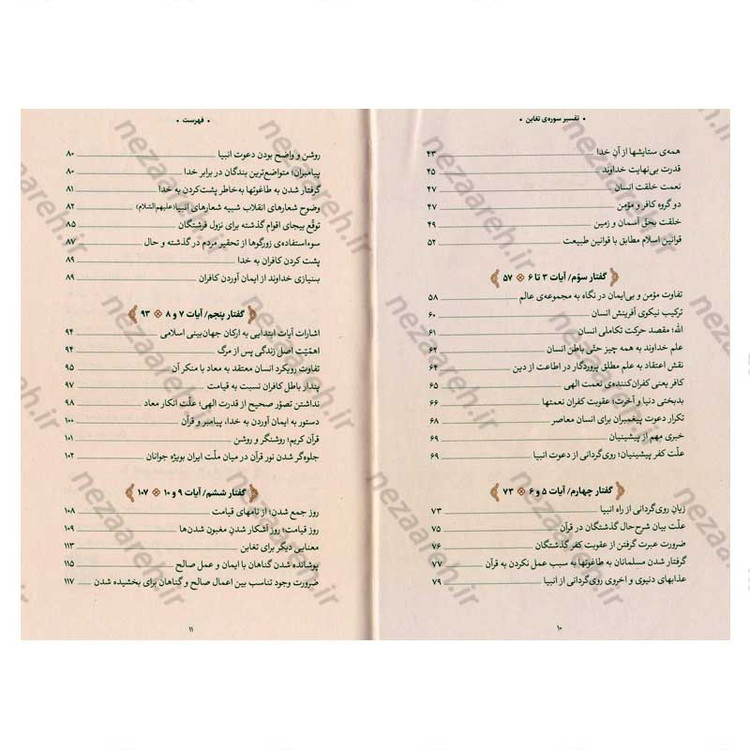 • تفسیر سوره‌ی تغابن •
همه‌ی ستایشها از آنِ خدا ۴۳
قدرت بی‌نهایت خداوند ۴۵
نعمت خلقت انسان ۴۷
دو گروه کافر و مؤمن ۴۷
خلقت بحقّ آسمان و زمین ۴۹
قوانین اسلام مطابق با قوانین طبیعت ۵۲
گفتار سوّم/ آیات ۳ تا ۶ ۵۷
تفاوت مؤمن و بی‌ایمان در نگاه به مجموعه‌ی عالم ۵۸
ترکیب نیکوی آفرینش انسان ۶۰
الله؛ مقصد حرکت تکاملی انسان ۶۱
علم خداوند به همه چیز حتّی باطن انسان ۶۲
نقش اعتقاد به علم مطلق پروردگار در اطاعت از دین ۶۴
کافر یعنی کفران‌کننده‌ی نعمت الهی ۶۵
بدبختی دنیا و آخرت؛ عقوبت کفران نعمتها ۶۶
تکرار دعوت پیغمبران برای انسان معاصر ۶۸
خبری مهم از پیشینیان ۶۹
علّت کفر پیشینیان؛ روی‌گردانی از دعوت انبیا ۶۹
گفتار چهارم/ آیات ۵ و ۶ ۷۳
زیانِ روی‌گردانی از راه انبیا ۷۳
علّت بیان شرح‌حال گذشتگان در قرآن ۷۵
ضرورت عبرت گرفتن از عقوبت کفر گذشتگان ۷۶
گرفتار شدن مسلمانان به طاغوتها به سبب عمل نکردن به قرآن ۷۷
عذابهای دنیوی و اخروی روی‌گردانی از انبیا ۷۹
۱۰
• فهرست •
روشن و واضح بودن دعوت انبیا ۸۰
پیامبران؛ متواضع‌ترین بندگان در برابر خدا ۸۰
گرفتار شدن به طاغوتها به خاطر پشت‌کردن به خدا ۸۱
وضوح شعارهای انقلاب شبیه شعارهای انبیا(علیهم‌السّلام) ۸۲
توقّع بیجای اقوام گذشته برای نزول فرشتگان ۸۵
سوءاستفاده‌ی زورگوها از تحقیر مردم در گذشته و حال ۸۷
پشت کردن کافران به خدا ۸۹
بی‌نیازی خداوند از ایمان آوردن کافران ۸۹
گفتار پنجم/ آیات ۷ و ۸ ۹۳
اشارات آیات ابتدایی به ارکان جهان‌بینی اسلامی ۹۴
اهمّیّت اصل زندگی پس از مرگ ۹۴
تفاوت رویکرد انسان معتقد به معاد با منکر آن ۹۵
پندار باطل کافران نسبت به قیامت ۹۷
نداشتن تصوّر صحیح از قدرت الهی؛ علّت انکار معاد ۹۸
دستور به ایمان آوردن به خدا، پیامبر و قرآن ۱۰۰
قرآن کریم؛ روشنگر و روشن ۱۰۱
جلوه‌گر شدن نور قرآن در میان ملّت ایران بویژه جوانان ۱۰۲
گفتار ششم/ آیات ۹ و ۱۰ ۱۰۷
روز جمع شدن؛ از نامهای قیامت ۱۰۸
روز قیامت؛ روز آشکار شدنِ مغبون شدن‌ها ۱۰۹
معنایی دیگر برای تغابن ۱۱۳
پوشانده شدن گناهان با ایمان و عمل صالح ۱۱۵
ضرورت وجود تناسب بین اعمال صالح و گناهان برای بخشیده شدن ۱۱۷
۱۱
nezaareh.ir